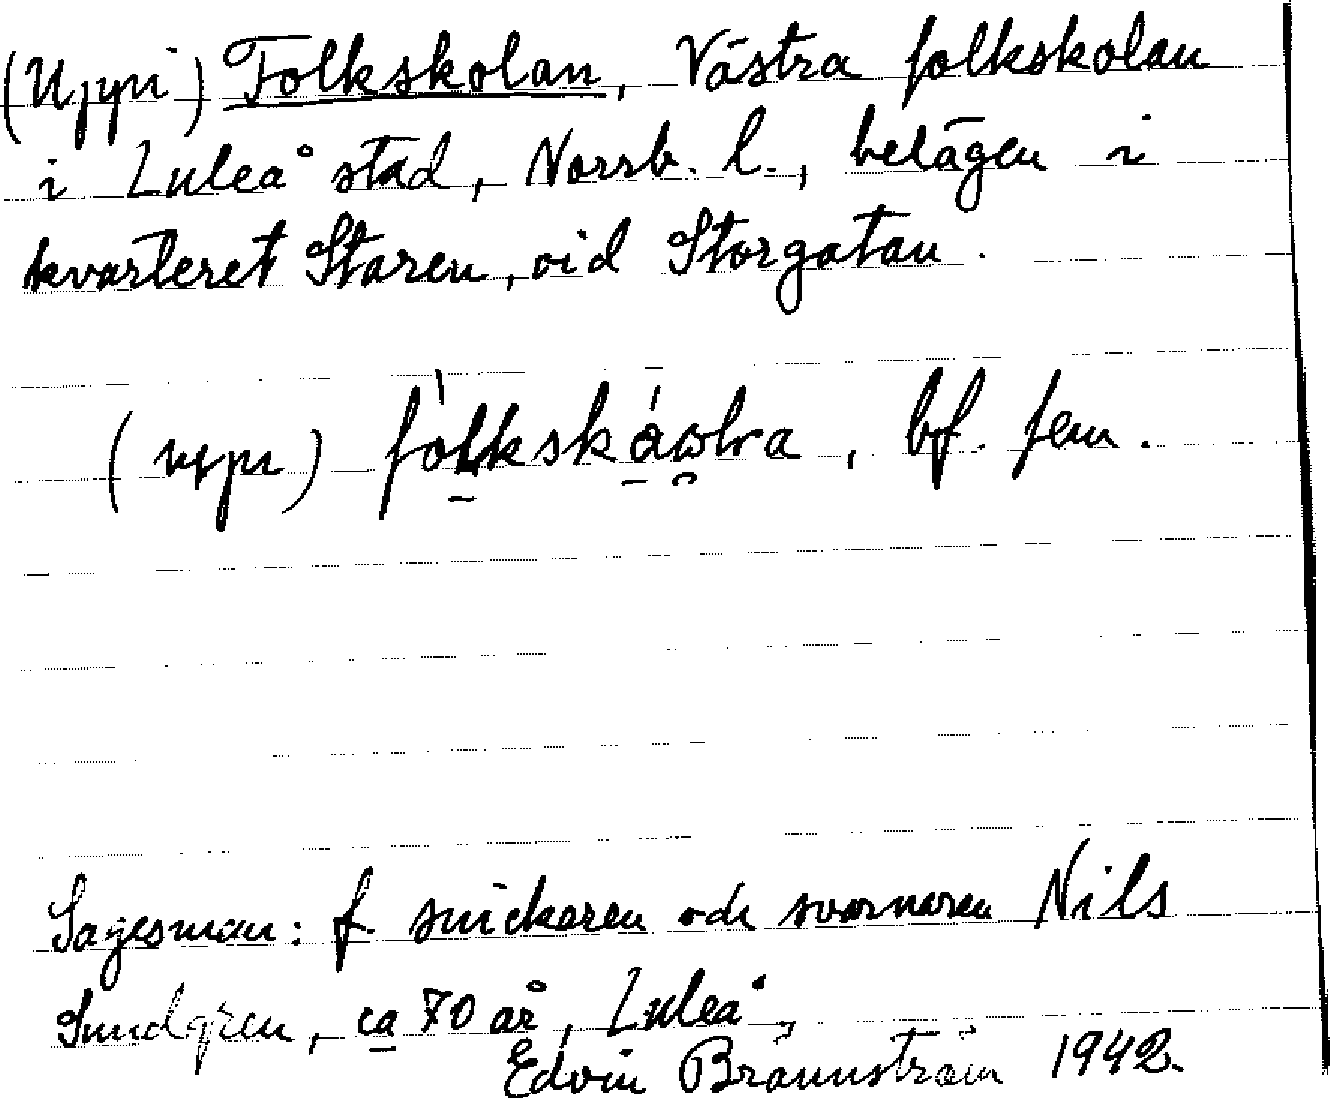 (Ujpn) Folkskolan, Västra folkskolan
i Luleå stad, Norrb. l., belägen i
kvarteret Staren, vid Storgatan.
bf. fem.
Sagesman: f. snickaren och svarvaren Nils
Sundgren, ca 70 år, Luleå,
Edvin Brännström 1942.